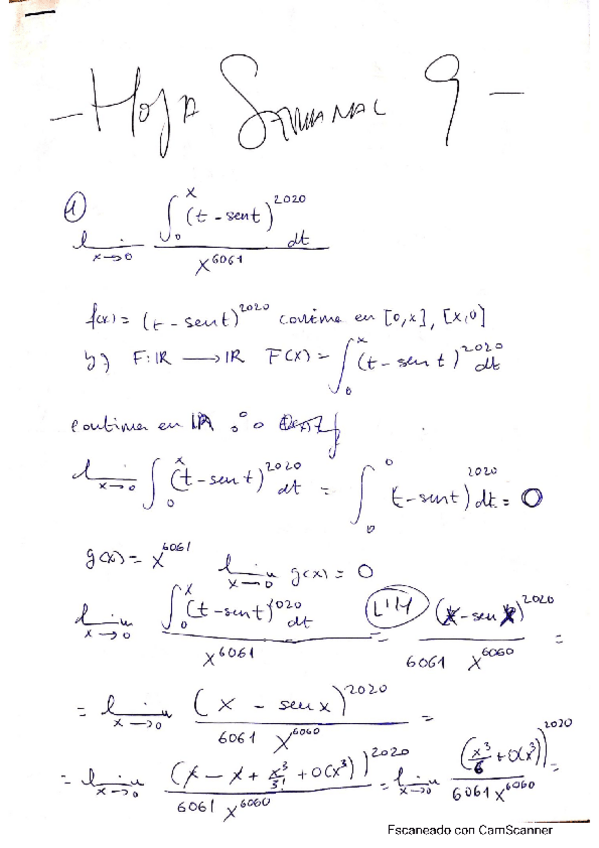 - Hoja Semanal 9 -
① lim x→0 ∫₀ˣ (t - sent)²⁰²⁰ dt / x⁶⁰⁶¹
f(x) = (t - sent)²⁰²⁰ continua en [0,x], [x,0]
y F: ℝ → ℝ F(x) = ∫₀ˣ (t - sent)²⁰²⁰ dt
continua en ℝ
lim x→0 ∫₀ˣ (t - sent)²⁰²⁰ dt = ∫₀⁰ (t - sent)²⁰²⁰ dt = 0
g(x) = x⁶⁰⁶¹ lim x→0 g(x) = 0
lim x→0 ∫₀ˣ (t - sent)²⁰²⁰ dt / x⁶⁰⁶¹ = L'H (x - senx)²⁰²⁰ / 6061 x⁶⁰⁶⁰ =
= lim x→0 (x - senx)²⁰²⁰ / 6061 x⁶⁰⁶⁰ =
= lim x→0 (x - x + x³/3! + o(x³))²⁰²⁰ / 6061 x⁶⁰⁶⁰ = lim x→0 (x³/6 + o(x³))²⁰²⁰ / 6061 x⁶⁰⁶⁰ =
Escaneado con CamScanner